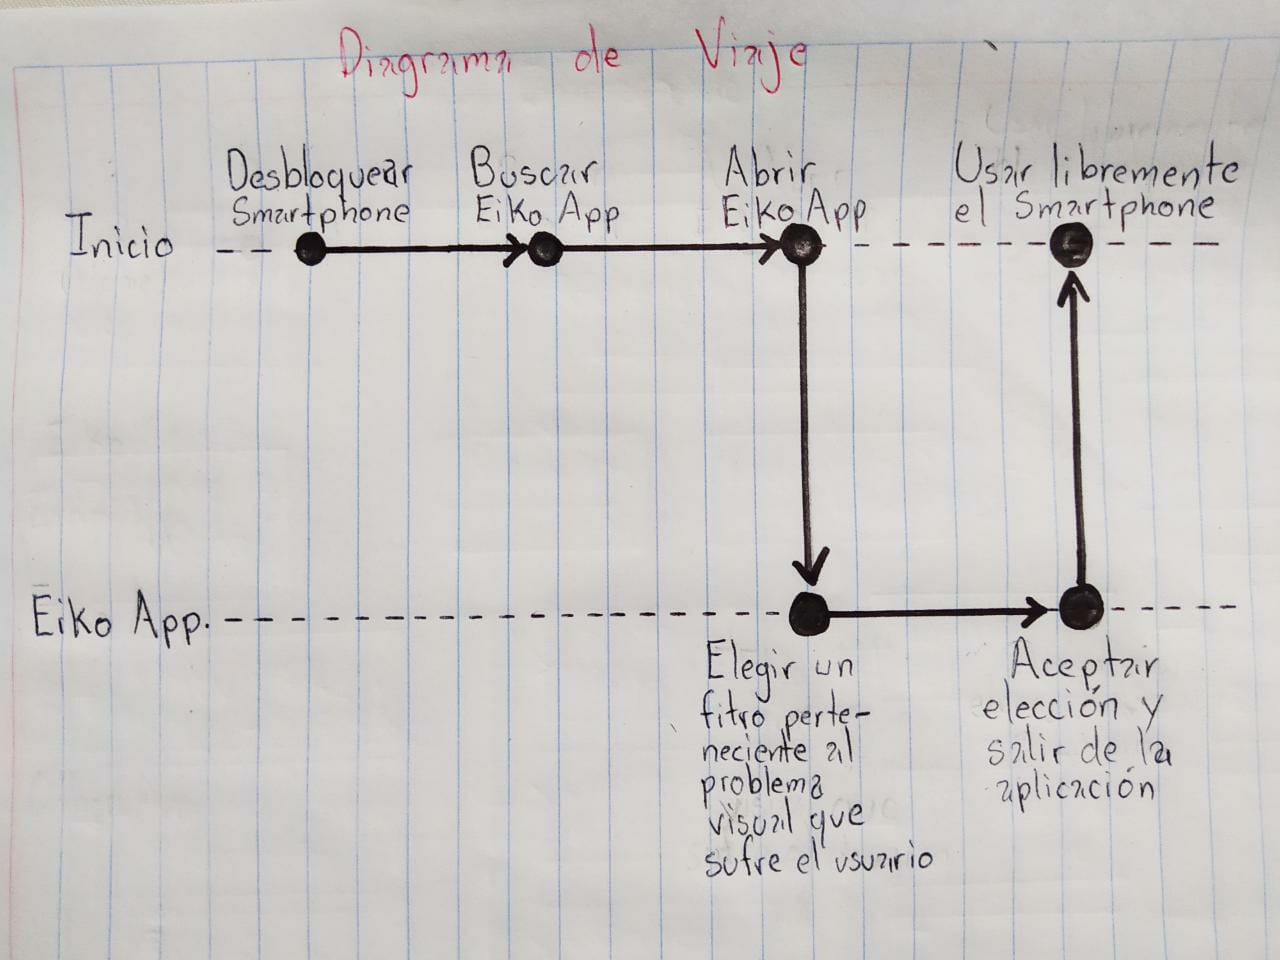 Diagrama de Viaje
Desbloquear
Smartphone
Buscar
Eiko App
Abrir
Eiko App
Usar libremente
el Smartphone
Inicio
Eiko App.
Elegir un
fitro perte-
neciente al
problema
visual que
sufre el usuario
Aceptar
elección y
salir de la
aplicación